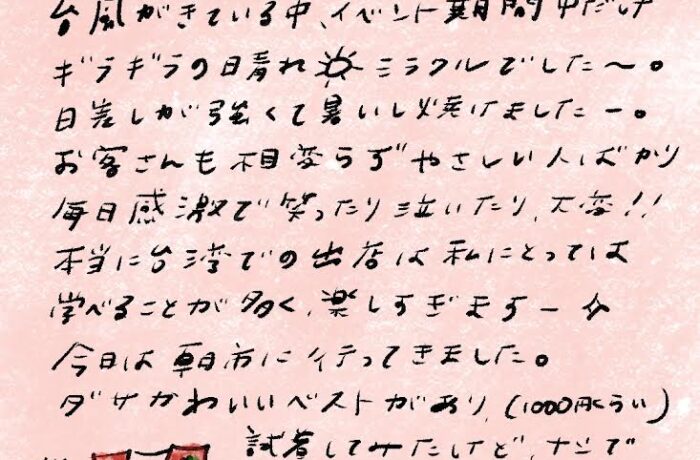 台風がきている中、イベント期間中だけ
ギラギラの日晴れ☼ミラクルでした〜。
日差しが強くて暑いし焼けましたー。
お客さんも相変らずやさしい人ばかり
毎日感激で笑ったり泣いたり、大変!!
本当に台湾での出店は私にとっては
学べることが多く、楽しすぎますー☆
今日は朝市に行ってきました。
ダサかわいいベストがあり、(1000円くらい)
試着してみたけど、